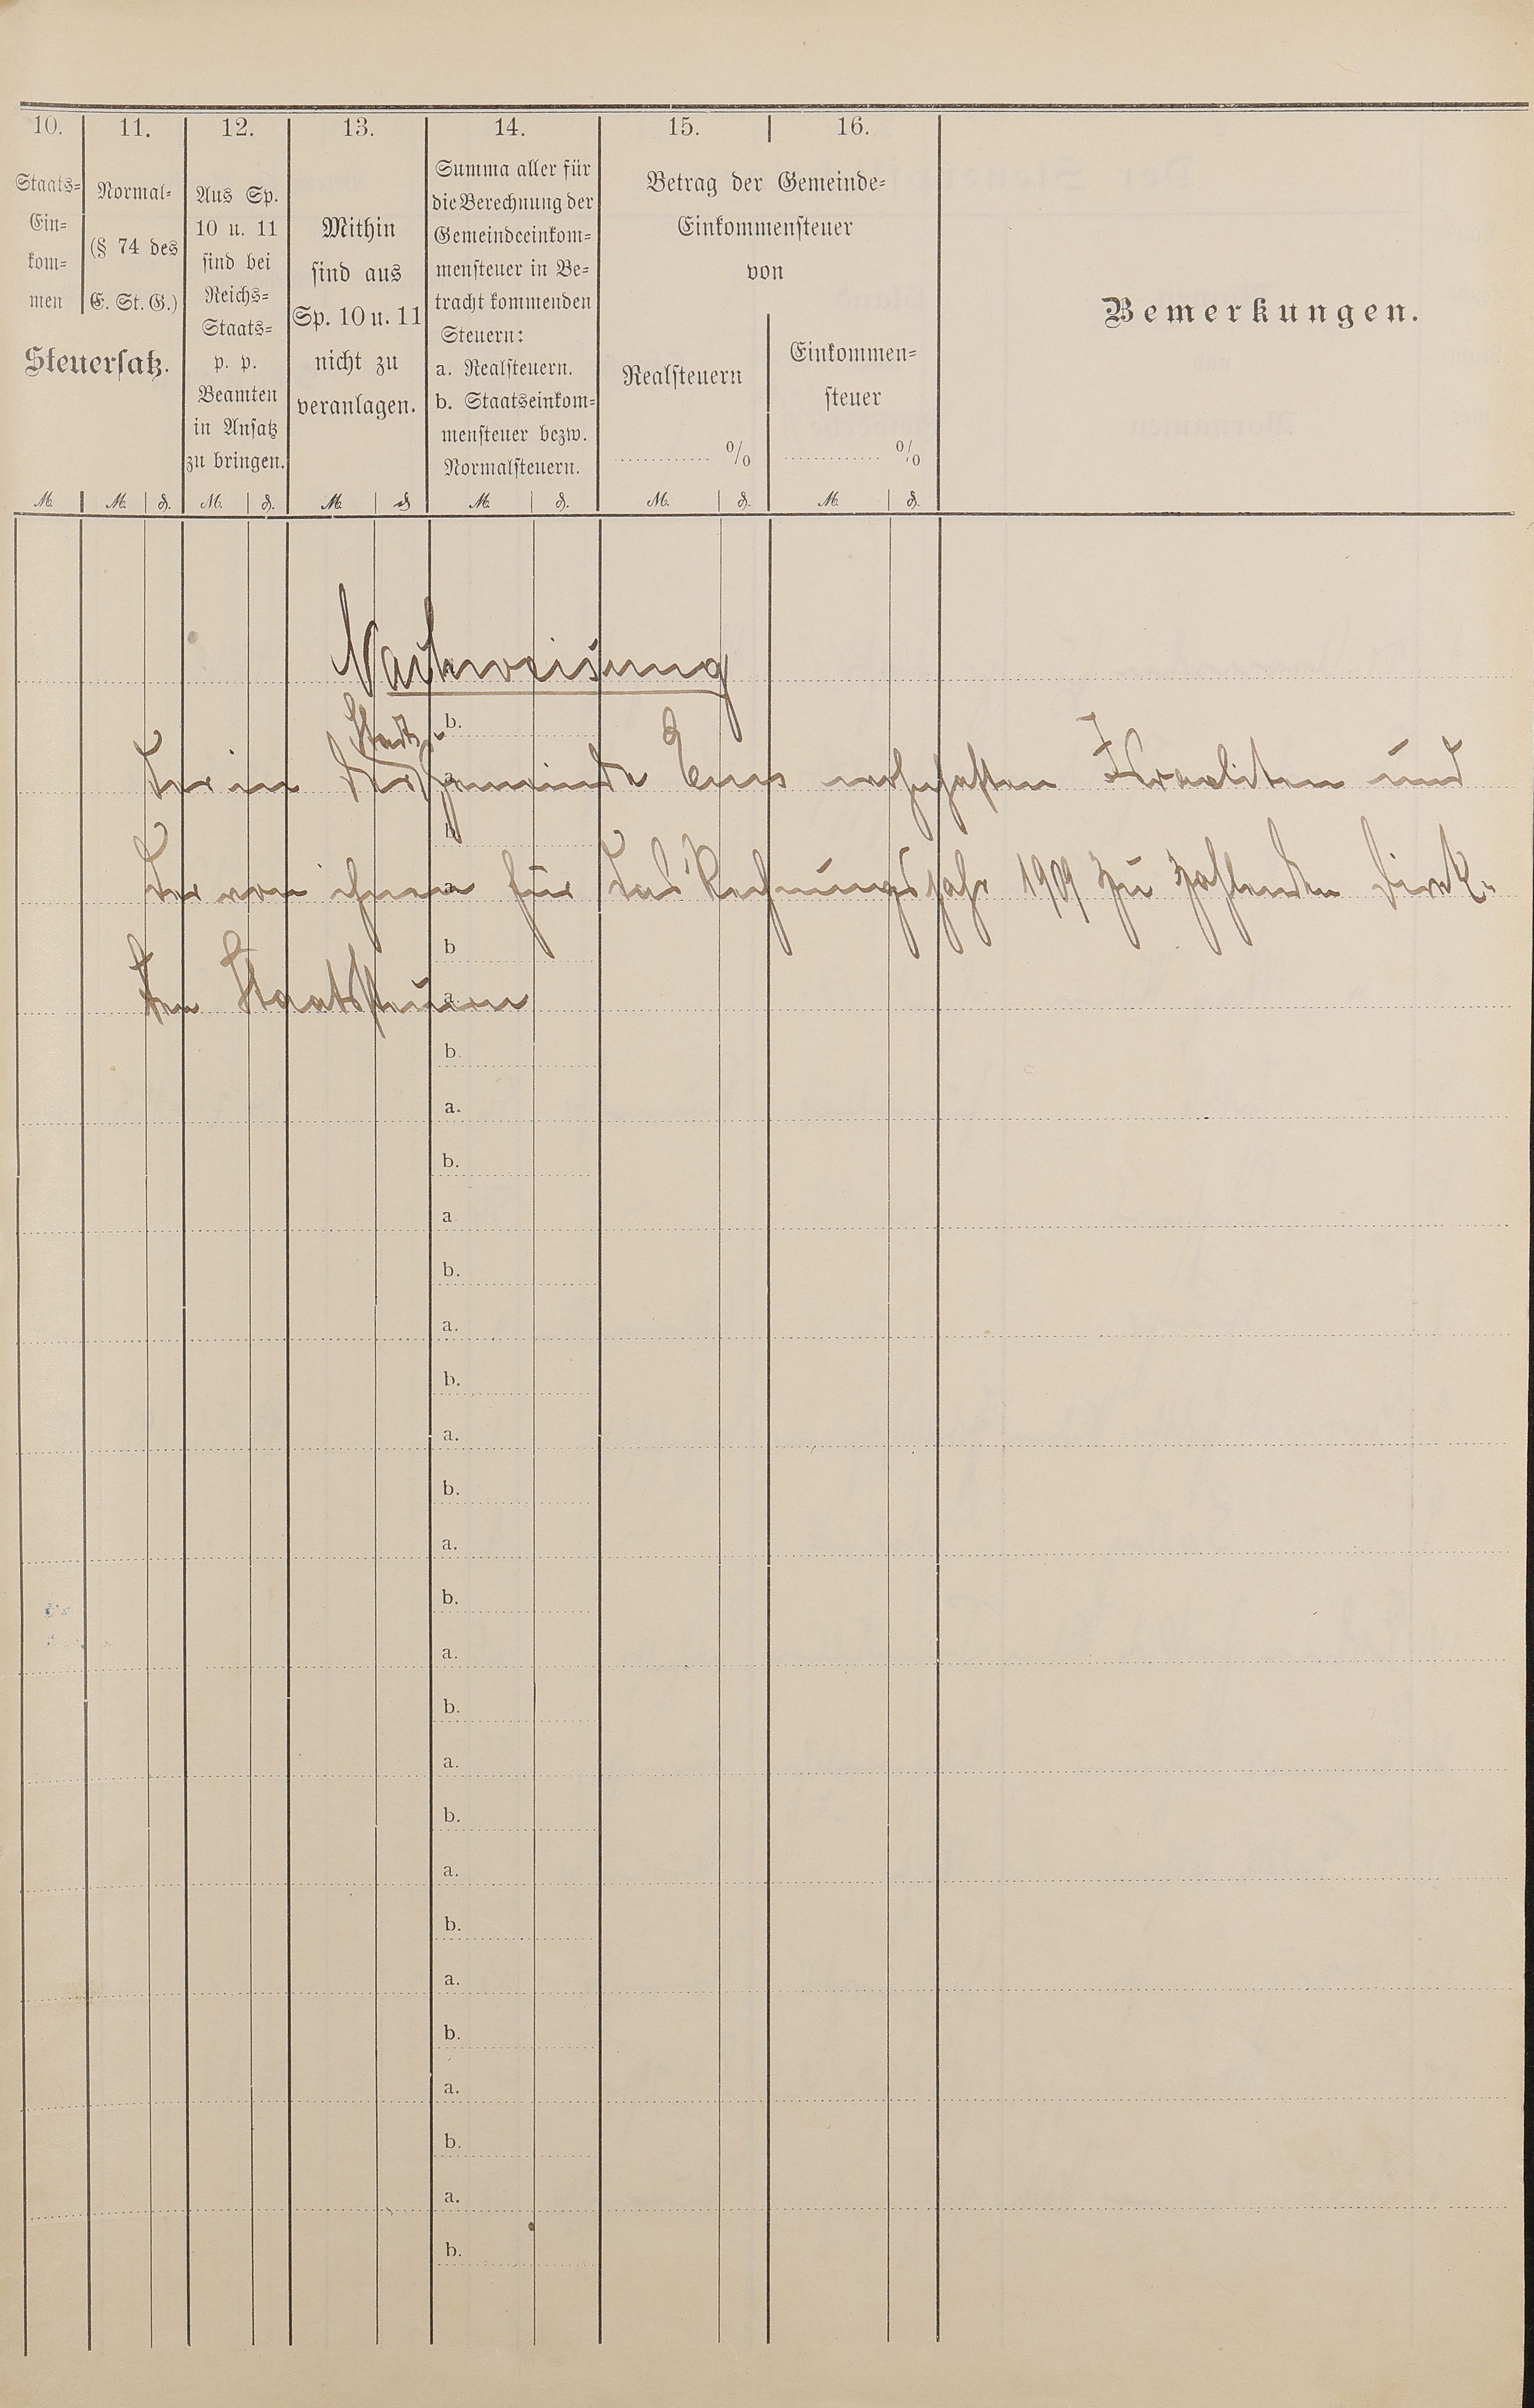 10. 11. 12. 13. 14. 15. 16.
Staats-
Ein-
kom-
men
Normal-
(§ 74 des
E. St. G.)
Steuersatz.
Aus Sp.
10 u. 11
sind bei
Reichs-
Staats-
p. p.
Beamten
in Ansatz
zu bringen.
Mithin
sind aus
Sp. 10 u. 11
nicht zu
veranlagen.
Summa aller für
die Berechnung der
Gemeindeeinkom-
mensteuer in Be-
tracht kommenden
Steuern:
a. Realsteuern.
b. Staatseinkom-
mensteuer bezw.
Normalsteuern.
Betrag der Gemeinde-
Einkommensteuer
von
Realsteuern
%
Einkommen-
steuer
%
Bemerkungen.
M. M. ₰. M. ₰. M. ₰ M. ₰. M. ₰. M. ₰.
Nachweisung
b.
Stadt-
der in der gemeinde Ems wohnhaften Israeliten und
a.
b.
der von ihnen für das Rechnungsjahr 1909 zu zahlenden direk-
a.
b
ten Staatssteuern
a.
b.
a.
b.
a
b.
a.
b.
a.
b.
a.
b.
a.
b.
a.
b.
a.
b.
a.
b.
a.
b.
a.
b.